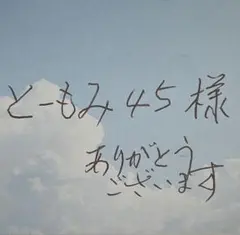 とーもみ45様
ありがとう
ございます